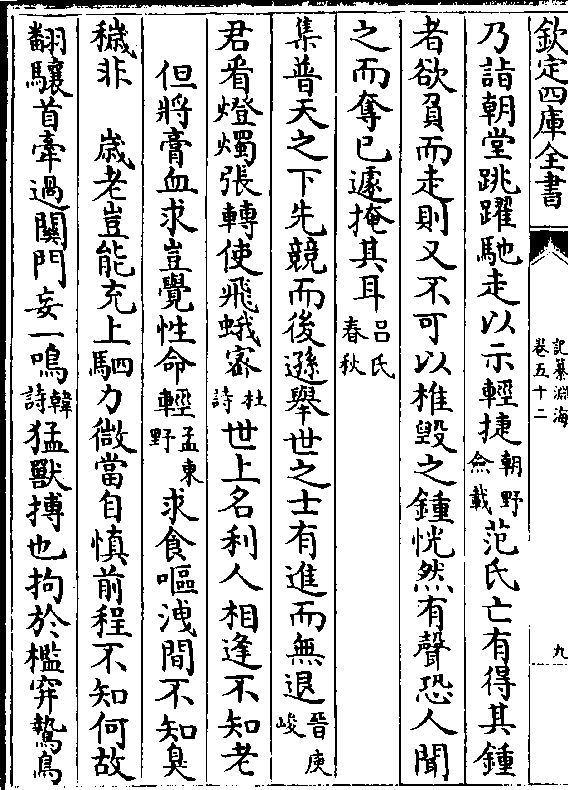 欽定四庫全書
記纂淵海
卷五十二
九
乃詣朝堂跳躍馳走以示輕捷朝野僉載范氏亡有得其鍾
者欲負而走則又不可以椎毀之鍾恍然有聲恐人聞
之而奪已遽掩其耳吕氏春秋
集普天之下先競而後遜舉世之士有進而無退晉庾峻
君看燈燭張轉使飛蛾密杜詩世上名利人相逢不知老
但將膏血求豈覺性命輕孟東野求食嘔洩間不知臭
穢非 歳老豈能充上駟力微當自慎前程不知何故
翻驤首牽過關門妄一鳴韓詩猛獸搏也拘於檻穽鷙鳥